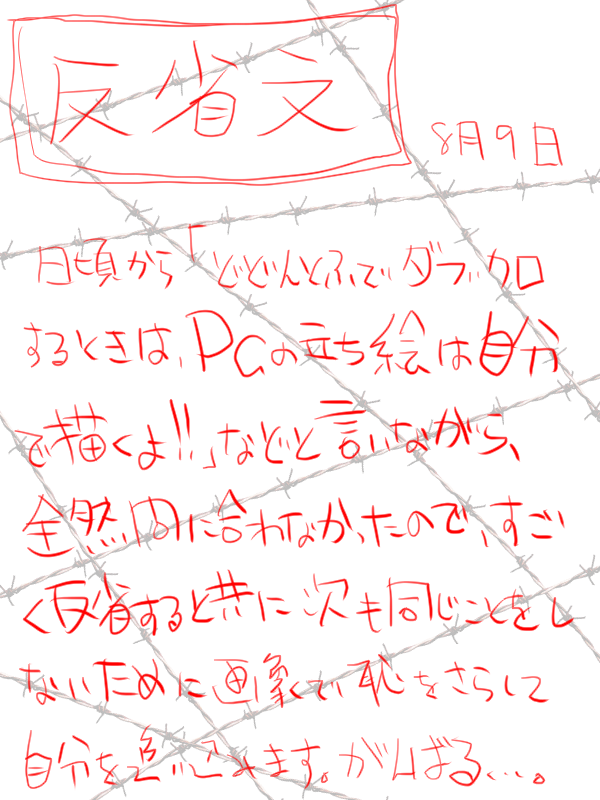 反省文
8月9日
日頃から「どどんとふでダブクロ
するときは、PCの立ち絵は自分
で描くよ!!」などと言いながら、
全然間に合わなかったので、すご
く反省すると共に次も同じことをし
ないために画象で恥をさらして
自分を追い込みます。がんばる…。